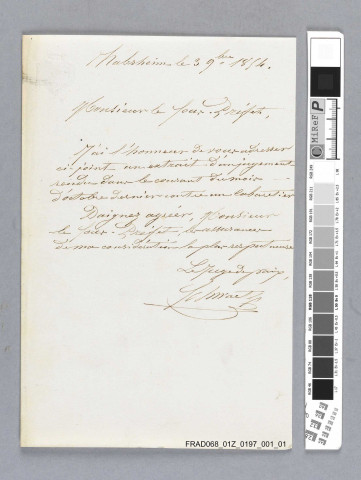 Habsheim le 3 9bre 1854.
Monsieur le Sous-Préfet,
J'ai l'honneur de vous adresser
ci-joint un extrait d'un jugement
rendu dans le courant du mois
d'octobre dernier contre un cabaretier
Daignez agréer, Monsieur
le Sous-Préfet, l'assurance
de ma considération la plus respectueuse
Le Juge de paix,
FRAD068_01Z_0197_001_01